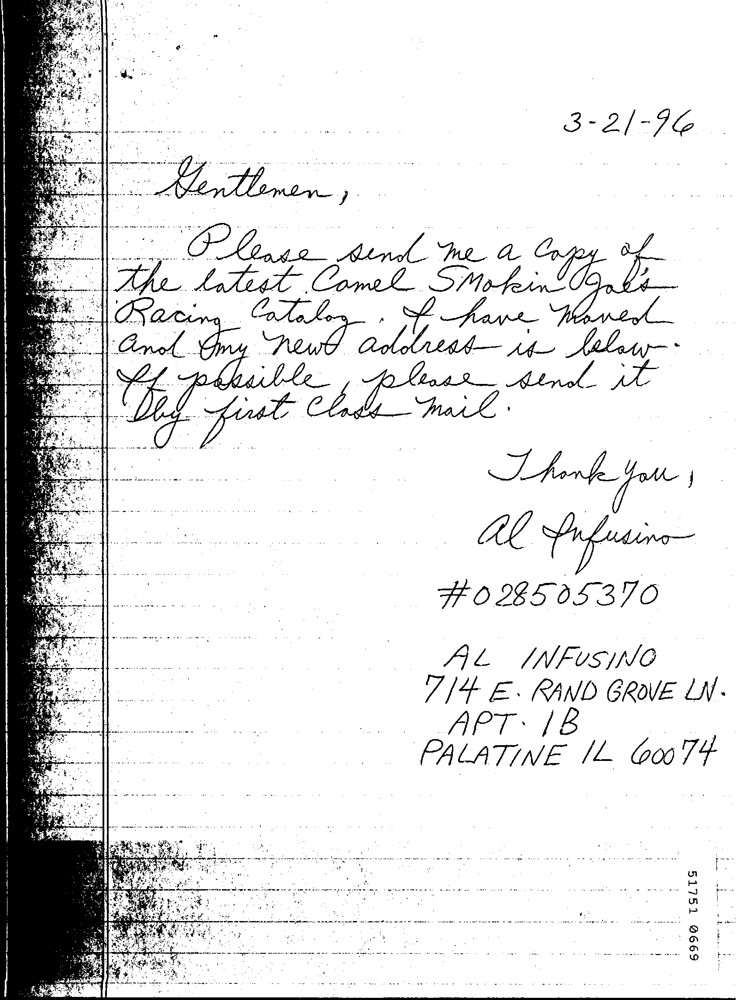 3-21-96
Gentlemen,
Please send me a copy of
the latest Camel Smokin Joe's
Racing Catalog. I have moved
and my new address is below.
If possible, please send it
by first class mail.
Thank you,
Al Infusino
#028505370
AL INFUSINO
714 E. RAND GROVE LN.
APT. 1B
PALATINE IL 60074
51751 0669